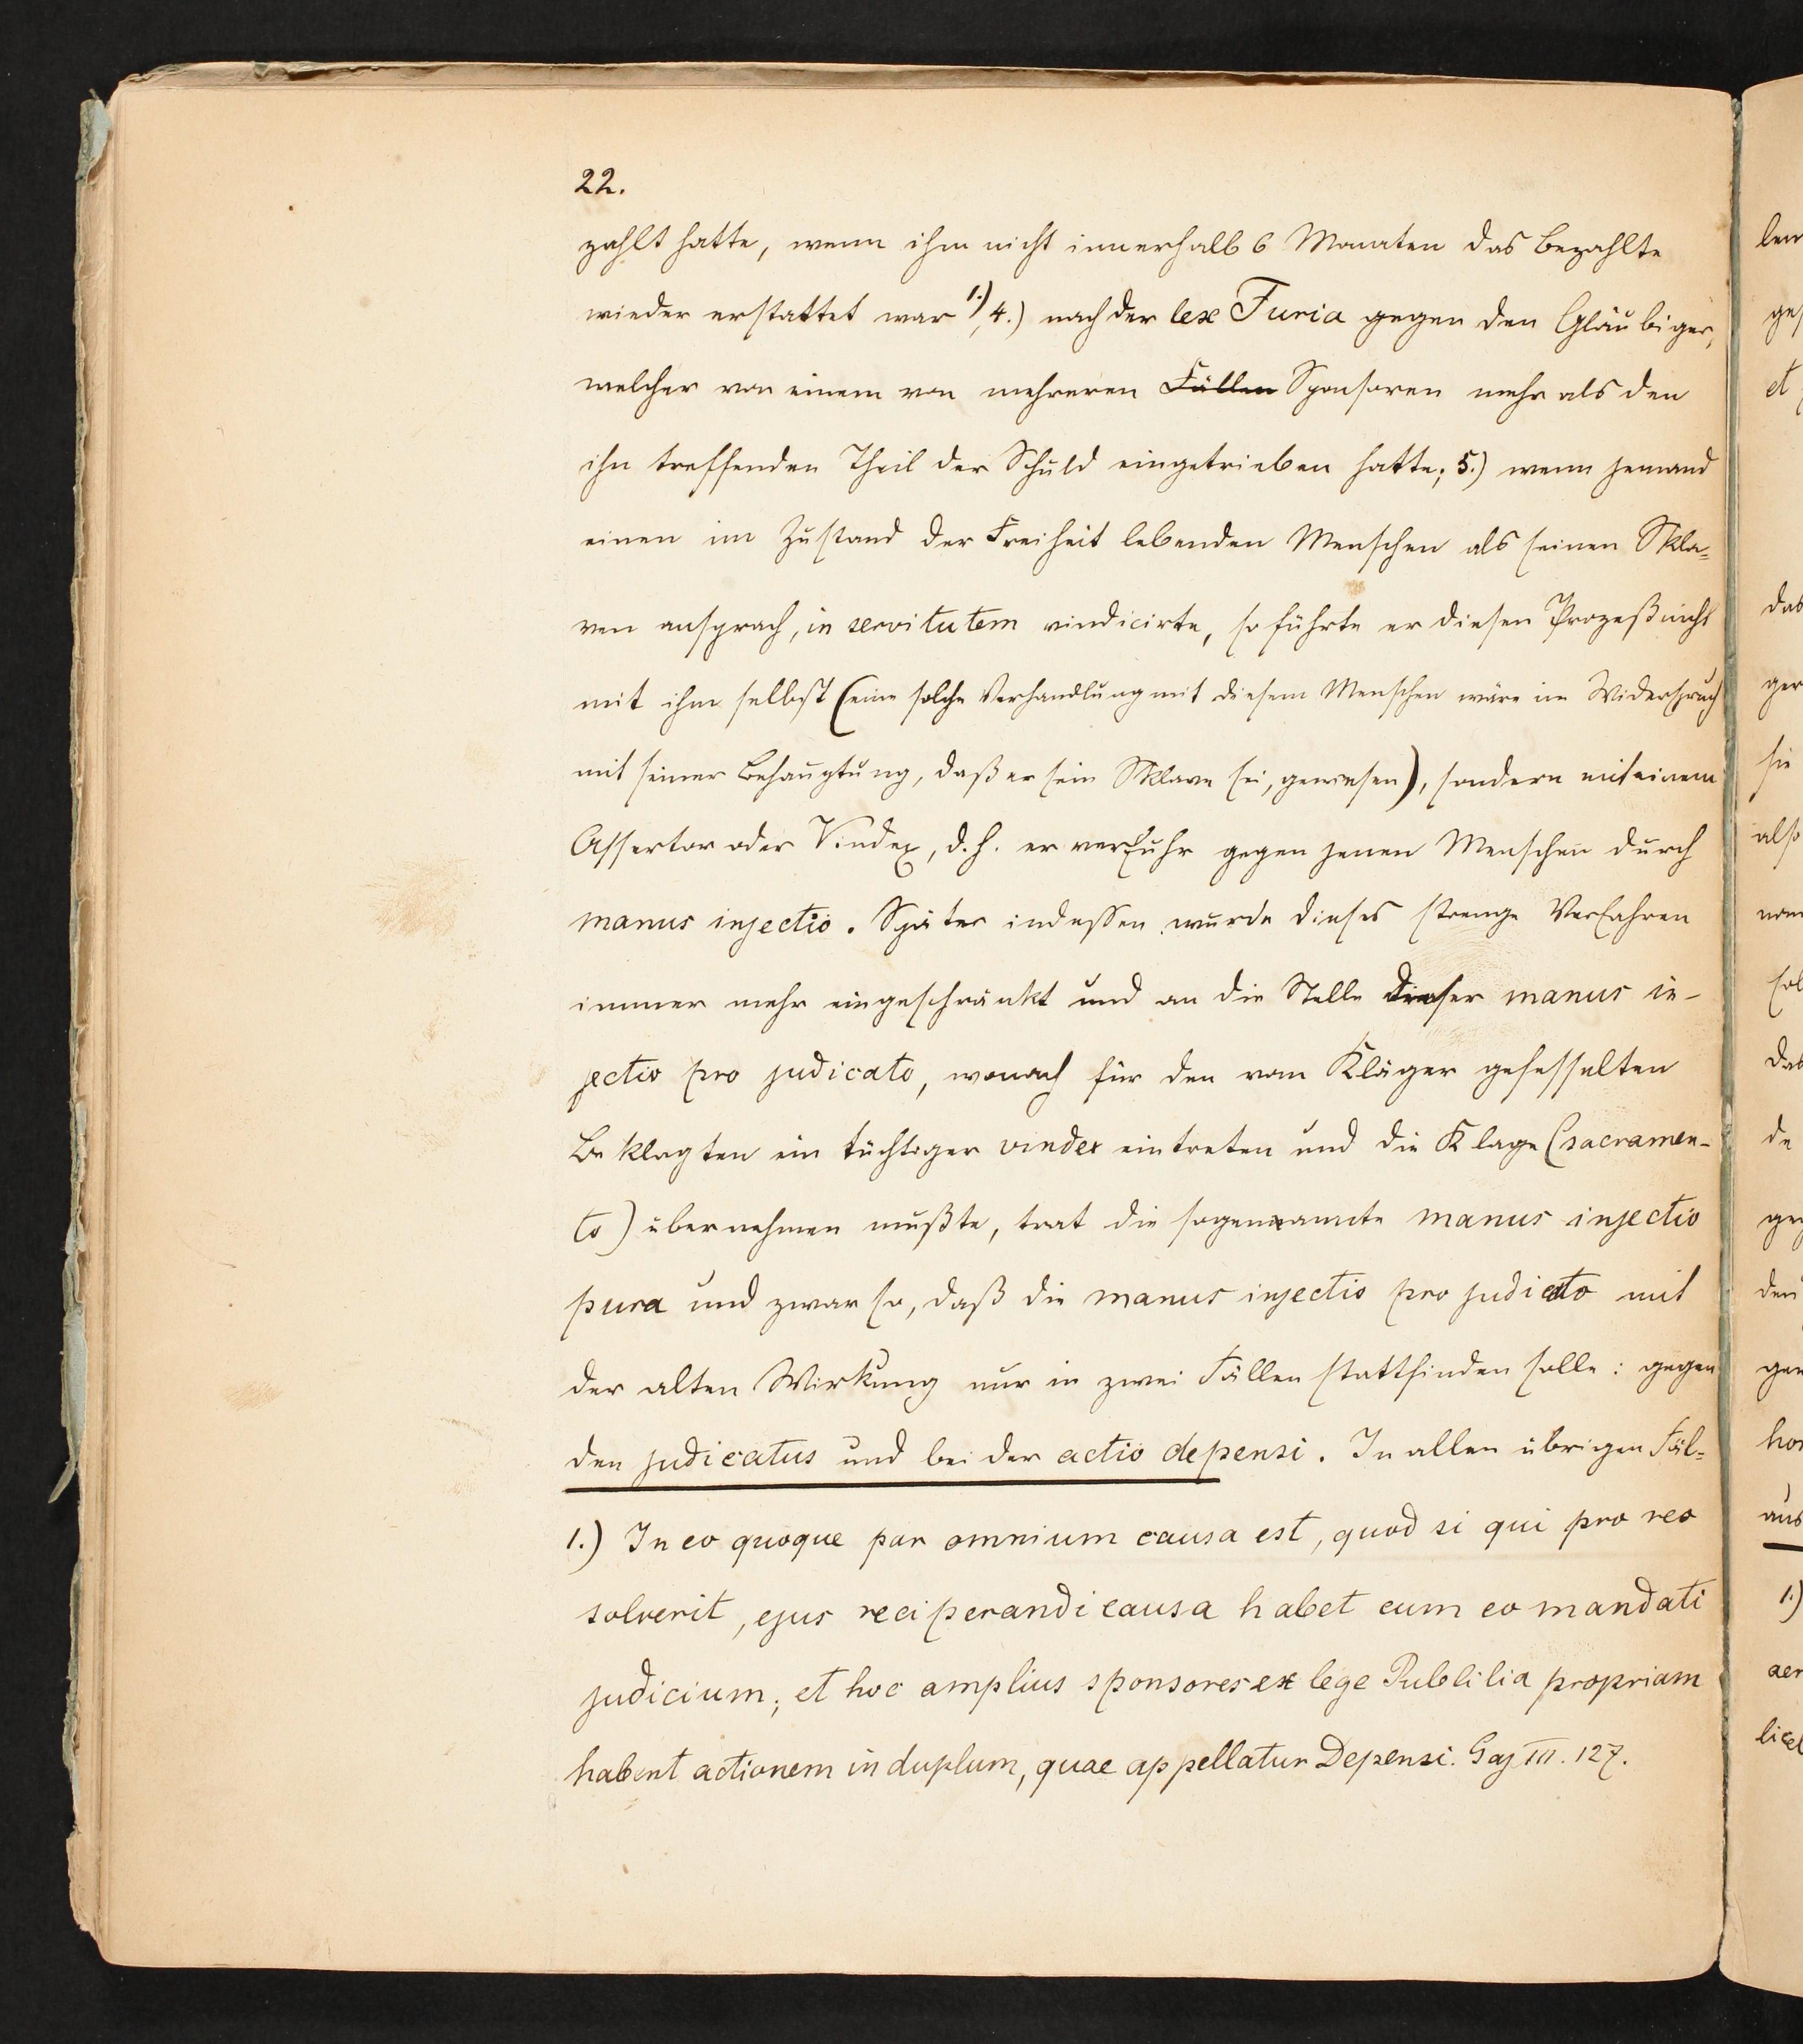 22.
zahlt hatte, wenn ihm nicht innerhalb 6 Monaten das Bezahlte
wieder erstattet war 1.), 4.) nach der lex Furia gegen den Gläubiger,
welcher von einem von mehreren Fällen Sponsoren mehr als den
ihn treffenden Theil der Schuld eingetrieben hatte; 5.) wenn jemand
einen im Zustand der Freiheit lebenden Menschen als seinen Skla=
ven ansprach, in servitutem vindicirte, so führte er diesen Prozeß nicht
mit ihm selbst (eine solche Verhandlung mit diesem Menschen wäre im Widerspruch
mit seiner Behauptung, daß er sein Sklave sei, gewesen), sondern mit einem
Assertor oder Vindex, d.h. er verfuhr gegen jenen Menschen durch
manus injectio. Später indessen wurde dieses strenge Verfahren
immer mehr eingeschränkt und an die Stelle dieser manus in-
jectio pro judicato, wonach für den vom Kläger gefesselten
Beklagten ein tüchtiger vindex eintreten und die Klage (sacramen-
to) übernehmen mußte, trat die sogenannte manus injectio
pura und zwar so, daß die manus injectio pro judicato mit
der alten Wirkung nur in zwei Fällen stattfinden solle: gegen
den judicatus und bei der actio depensi. In allen übrigen Fäl=
1.) In eo quoque par omnium causa est, quod si qui pro reo
solverit, ejus reciperandi causa habet cum eo mandati
judicium; et hoc amplius sponsores ex lege Publilia propriam
habent actionem in duplum, quae appellatur Depensi. Gaj III. 127.